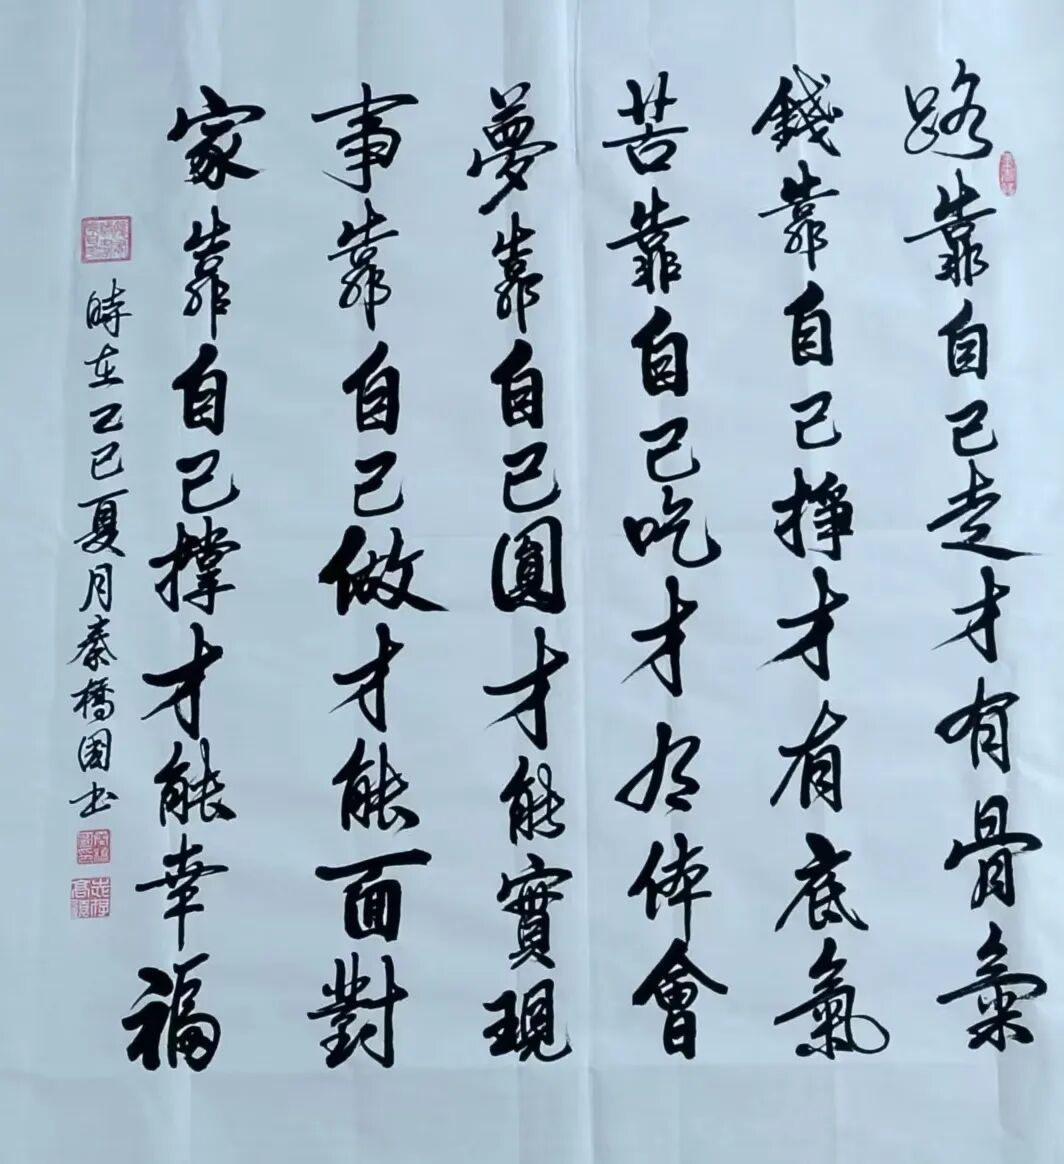 路靠自己走才有骨氣
錢靠自己掙才有底氣
苦靠自己吃才有体會
夢靠自己圓才能實現
事靠自己做才能面對
家靠自己撑才能幸福
時在乙巳夏月秦橋國书